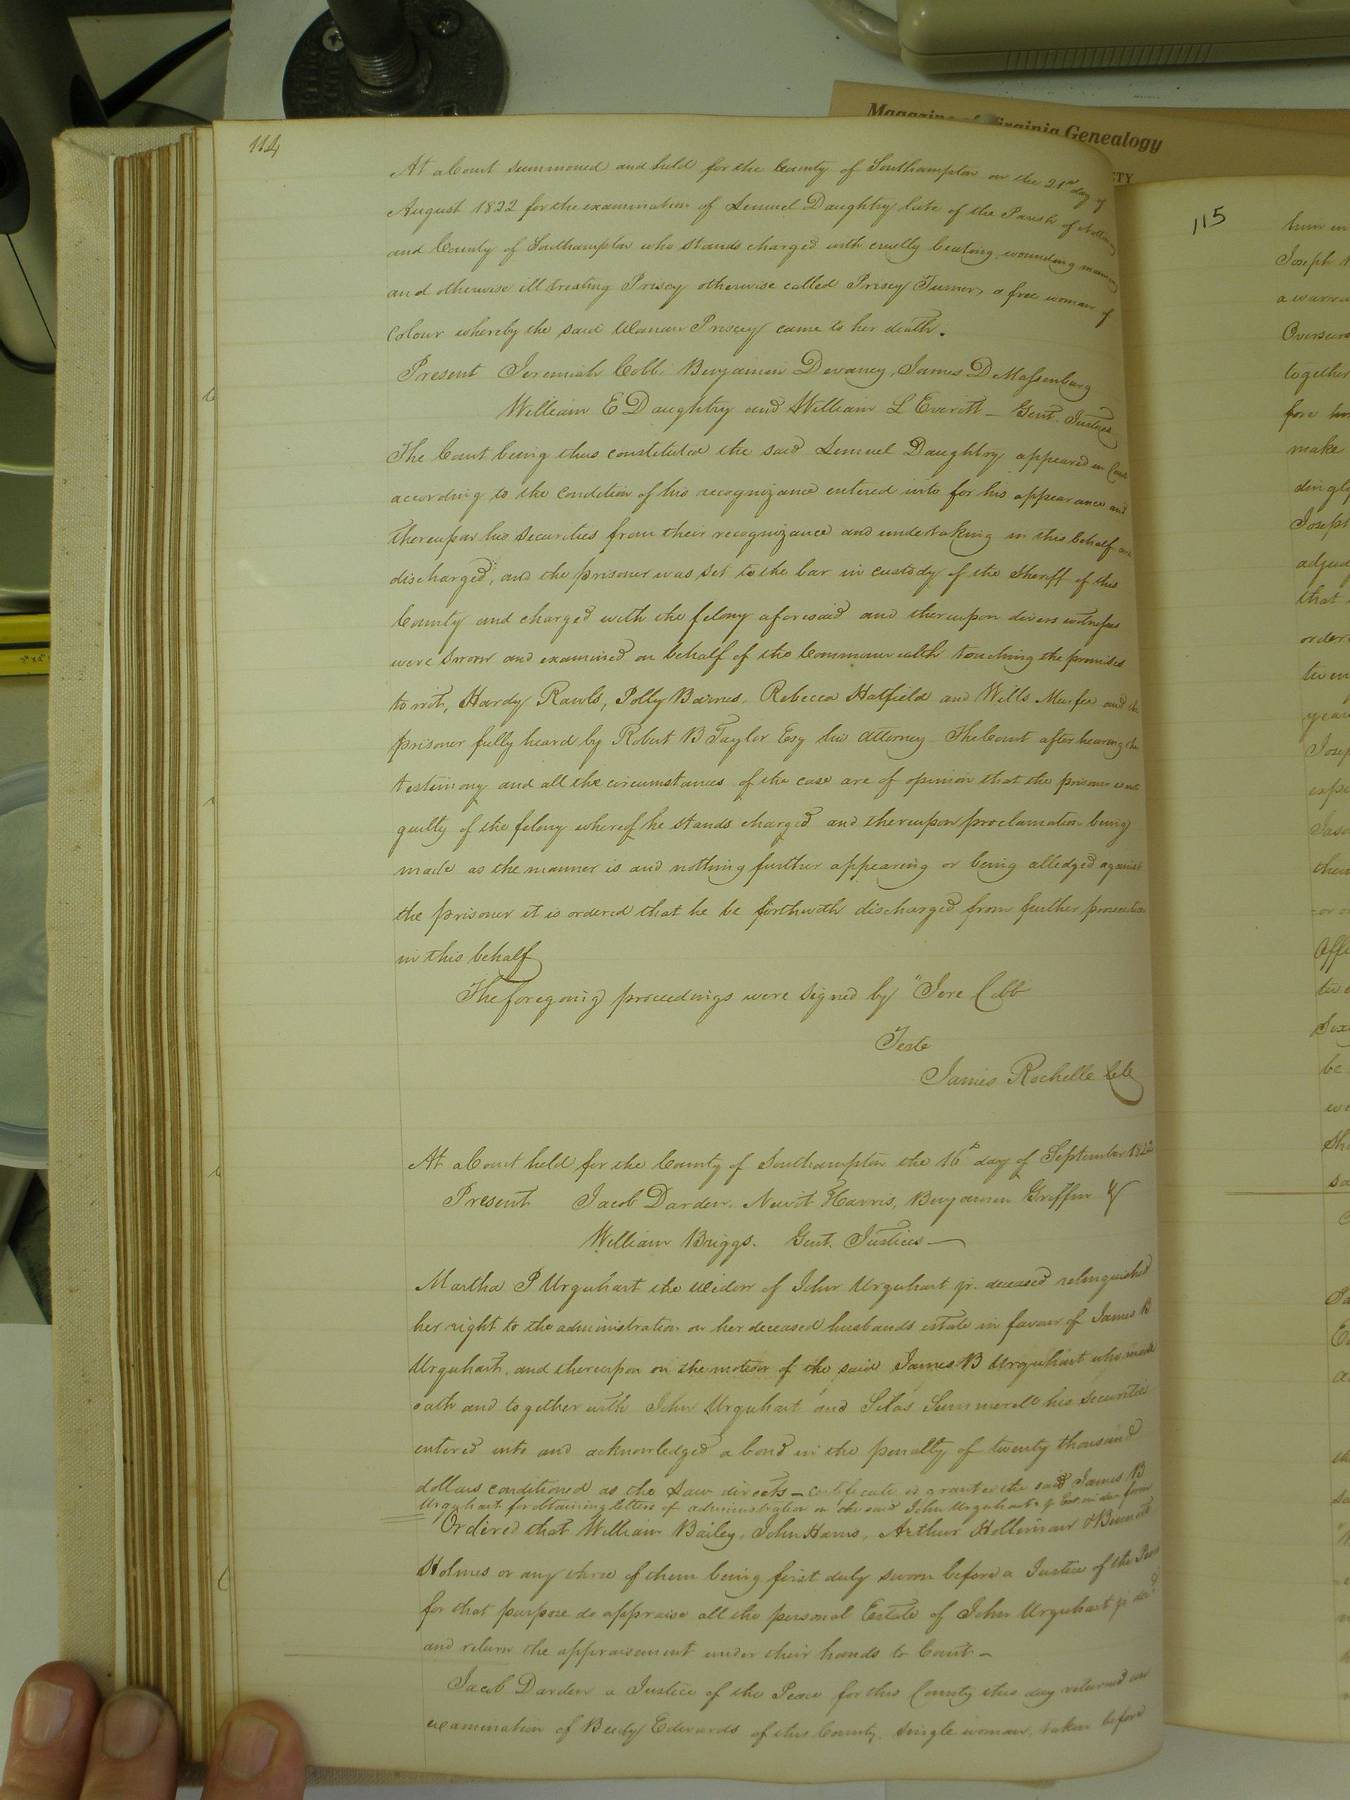 Magazine of Virginia Genealogy
114
At a Court summoned and held for the County of Southampton on the 21st day of
August 1822 for the examination of Lemuel Daughtry late of the Parish of
and County of Southampton who stands charged with cruelly beating, wounding
and otherwise illtreating Priscy otherwise called Priscy Turner, a free woman of
Colour whereby the said Woman Priscey came to her death.
Present Jeremiah Cobb, Benjamin Devany, James D Massenburg
William E Daughtry and William L Everitt - Gent. Justices
The Court being thus constituted the said Lemuel Daughtry appeared in Court
according to the condition of his recognizance entered into for his appearance and
thereupon his securities from their recognizance and undertaking in this behalf are
discharged, and the prisoner was set to the bar in custody of the Sheriff of this
County and charged with the felony aforesaid and thereupon divers witnesses
were sworn and examined on behalf of the Commonwealth touching the premises
to wit, Hardy Rawls, Polly Barnes, Rebecca Hatfield and Wills Murfee and the
prisoner fully heard by Robert B Taylor Esq his attorney The Court after hearing the
testimony and all the circumstances of the case are of opinion that the prisoner is not
guilty of the felony whereof he stands charged and thereupon proclamation being
made as the manner is and nothing further appearing or being alledged against
the prisoner it is ordered that he be forthwith discharged from further prosecution
in this behalf
The foregoing proceedings were signed by "Jere Cobb
Teste
James Rochelle Clk
At a Court held for the County of Southampton the 16th day of September 1822
Present Jacob Darden, Newit Harris, Benjamin Griffin &
William Briggs. Gent. Justices —
Martha P Urquhart the widow of John Urquhart jr. deceased relinquished
her right to the administration on her deceased husbands estate in favour of James B
Urquhart, and thereupon on the motion of the said James B Urquhart who made
oath and together with John Urquhart and Silas Summerell his securities
entered into and acknowledged a bond in the penalty of twenty thousand
dollars conditioned as the Law directs - certificate is granted the said James B
Urquhart for obtaining letters of administration on the said John Urquhart's jr Est. in due form
Ordered that William Bailey, John Harris, Arthur Holleman & Bennett
Holmes or any three of them being first duly sworn before a Justice of the Peace
for that purpose do appraise all the personal Estate of John Urquhart jr decd
and return the appraisement under their hands to Court -
Jacob Darden a Justice of the Peace for this County this day returned an
examination of Beedy Edwards of this County, single woman, taken before
115
him in
Joseph
a warra
Overseers
together
fore him
make
dingly
Joseph
that
order
year
them
be